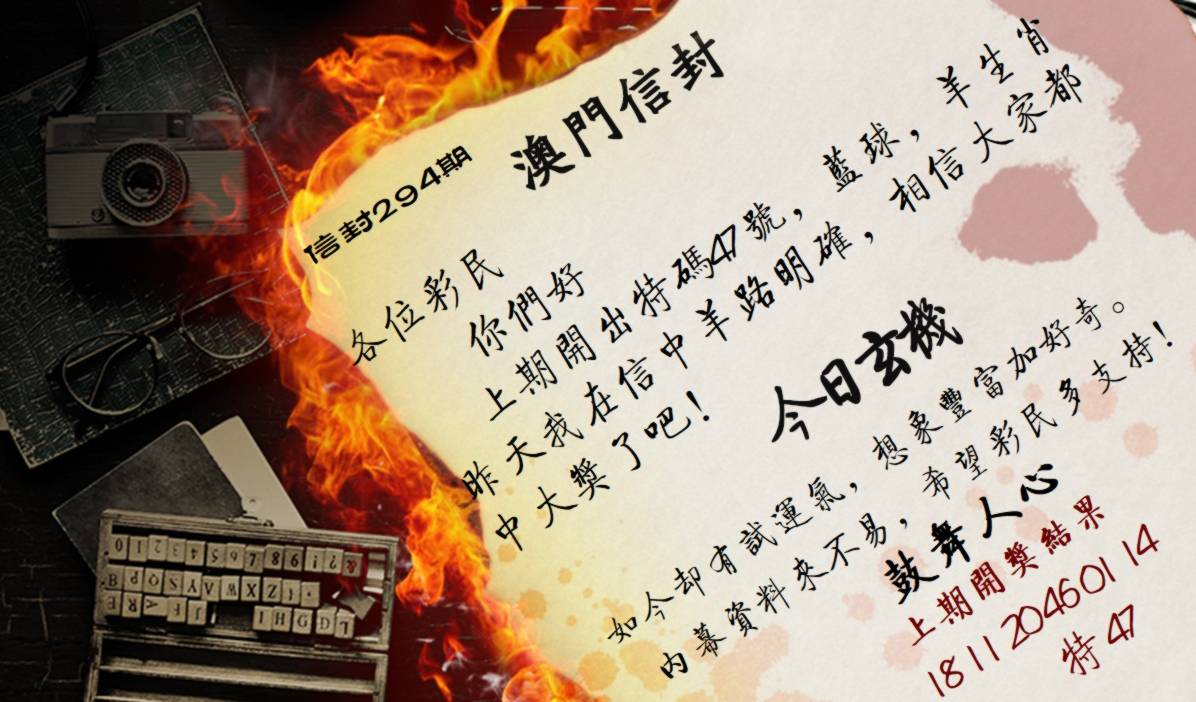 澳門信封
信封294期
各位彩民
你們好
上期開出特碼47號，藍球，羊生肖
昨天我在信中羊路明確，相信大家都
中大獎了吧！
今日玄機
如今却有試運氣，想象豐富加好奇。
内幕資料來不易，希望彩民多支持！
鼓舞人心
上期開獎結果
18 11 20 46 01 14
特 47